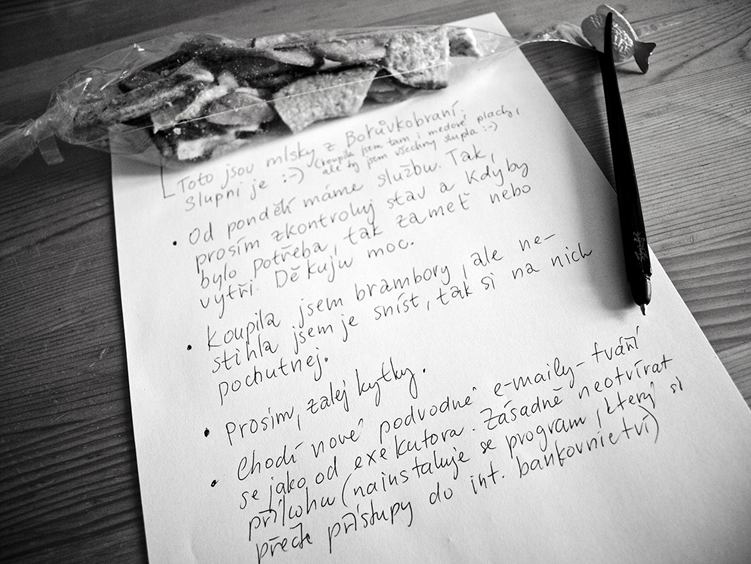 Toto jsou mlsky z Borůvkobraní.
Slupni je :-) (koupila jsem tam i medové plachy,
ale ty jsem všechny slupla :-)
• Od pondělí máme službu. Tak,
prosím zkontroluj stav a kdyby
bylo potřeba, tak zameť nebo
vytři. Děkuju moc.
• Koupila jsem brambory, ale ne-
stihla jsem je sníst, tak si na nich
pochutnej.
• Prosím, zalej kytky.
• Chodí nové podvodné e-maily - tváří
se jako od exekutora. Zásadně neotvírat
přílohu (nainstaluje se program, který si
přečte přístupy do int. bankovnictví)